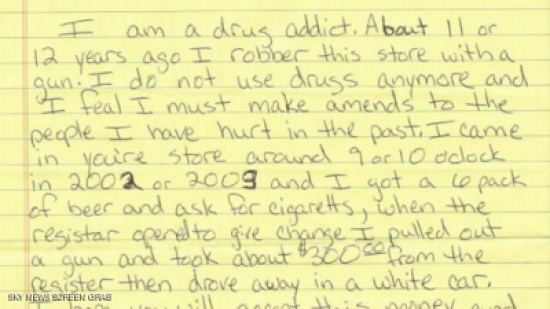 I am a drug addict. About 11 or
12 years ago I robber this store with a
gun. I do not use drugs anymore and
I feal I must make amends to the
people I have hurt in the past. I came
in you're store around 9 or 10 oclock
in 2002 or 2003 and I got a 6 pack
of beer and ask for cigaretts, when the
registar opened to give change I pulled out
a gun and took about $300.00 from the
register then drove away in a white car.
I hope you will accept this money and
SKY NEWS SCREEN GRAB